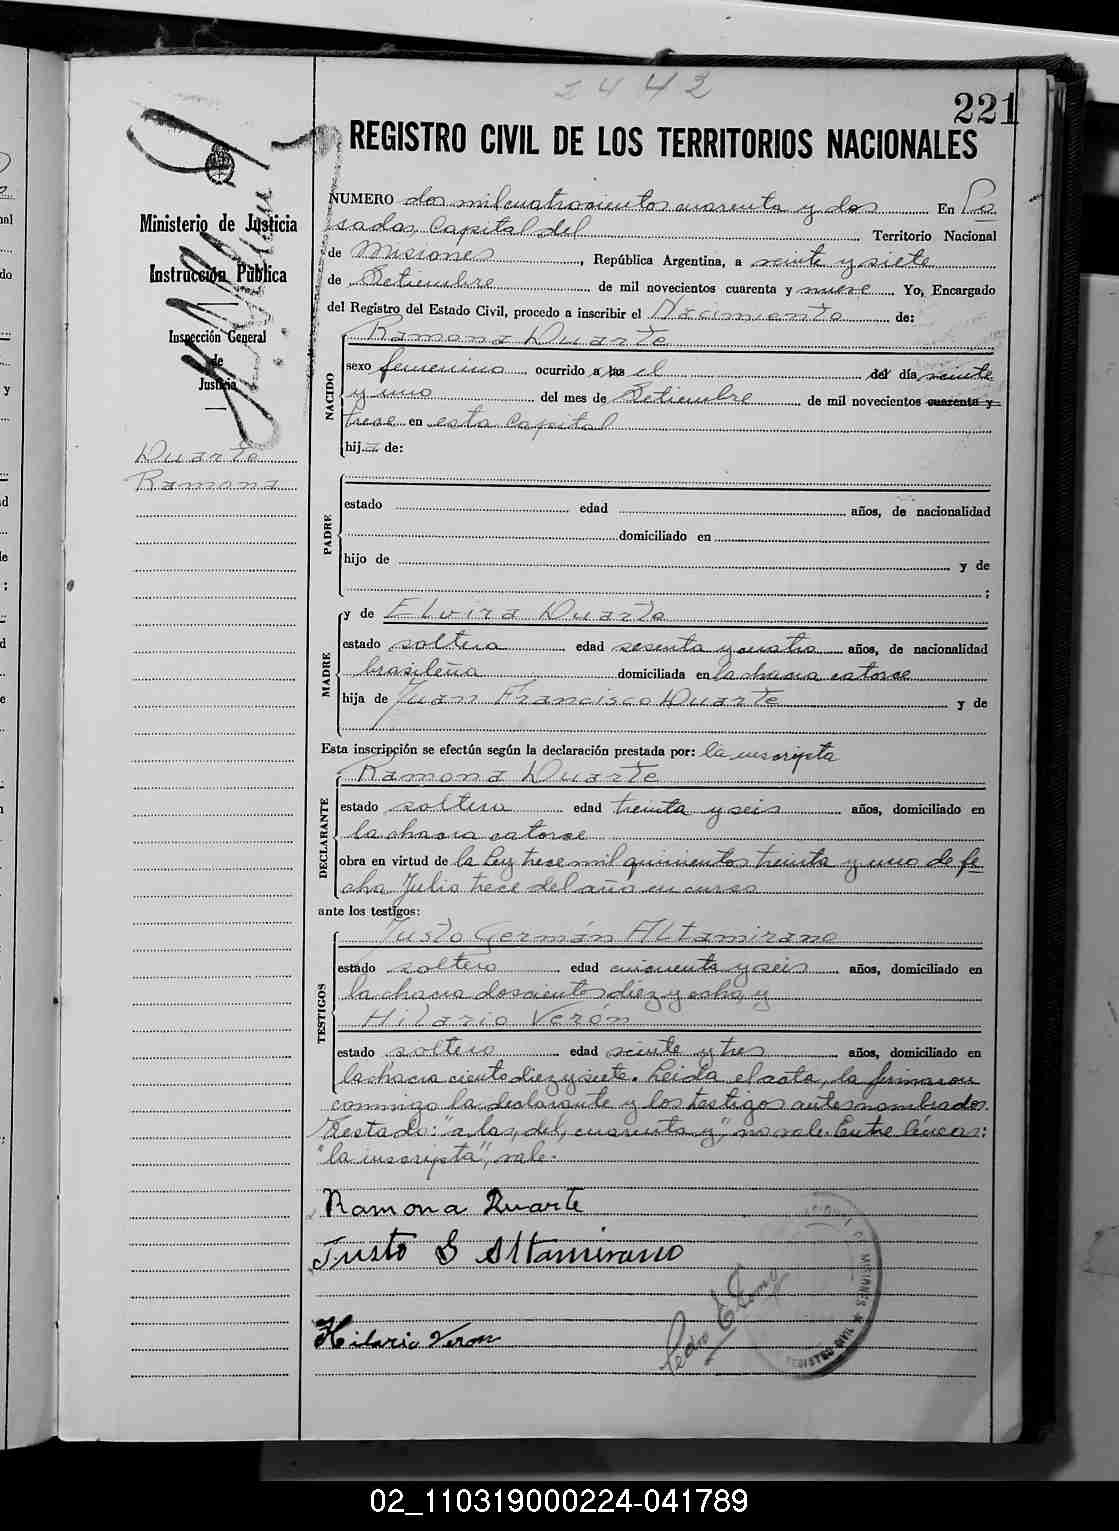 2442
221
REGISTRO CIVIL DE LOS TERRITORIOS NACIONALES
Ministerio de Justicia
Instrucción Pública
Inspección General
de
Justicia
Duarte
Ramona
NUMERO dos mil cuatrocientos cuarenta y dos En Po
sadas, Capital del Territorio Nacional
de Misiones, República Argentina, a veinte y siete
de Setiembre de mil novecientos cuarenta y nueve Yo, Encargado
del Registro del Estado Civil, procedo a inscribir el Nacimiento de:
Ramona Duarte
NACIDO
sexo femenino ocurrido a las el del día veinte
y uno del mes de Setiembre de mil novecientos cuarenta y
trece en esta Capital
hija de:
PADRE
estado edad años, de nacionalidad
domiciliado en
hijo de y de
;
MADRE
y de Elvira Duarte
estado soltera edad sesenta y cuatro años, de nacionalidad
brasileña domiciliada en la chacra catorce
hija de Juan Francisco Duarte y de
Esta inscripción se efectúa según la declaración prestada por: la inscripta
Ramona Duarte
DECLARANTE
estado soltera edad treinta y seis años, domiciliado en
la chacra catorce
obra en virtud de la Ley trece mil quinientos treinta y uno de fe
cha Julio trece del año en curso
ante los testigos:
TESTIGOS
Justo Germán Altamirano
estado soltero edad cincuenta y seis años, domiciliado en
la chacra doscientos diez y ocho, y
Hilario Verón
estado soltero edad veinte y tres años, domiciliado en
la chacra ciento diez y siete. Leída el acta, la firmaron
conmigo la declarante y los testigos antes nombrados.
Testado: "a las, del, cuarenta y", no vale. Entre líneas:
"la inscripta", vale.
Ramona Duarte
Justo G Altamirano
Hilario Veron
Pedro E
MISIONES
REGISTRO CIVIL
02_110319000224-041789